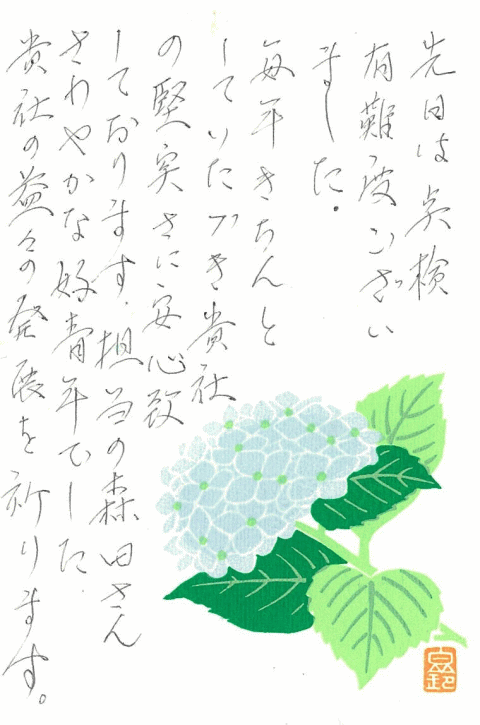 先日は点検
有難度ござい
ました。
毎年きちんと
していただき貴社
の堅実さに安心致
しております。担当の森田さん
さわやかな好青年でした。
貴社の益々の発展を祈ります。